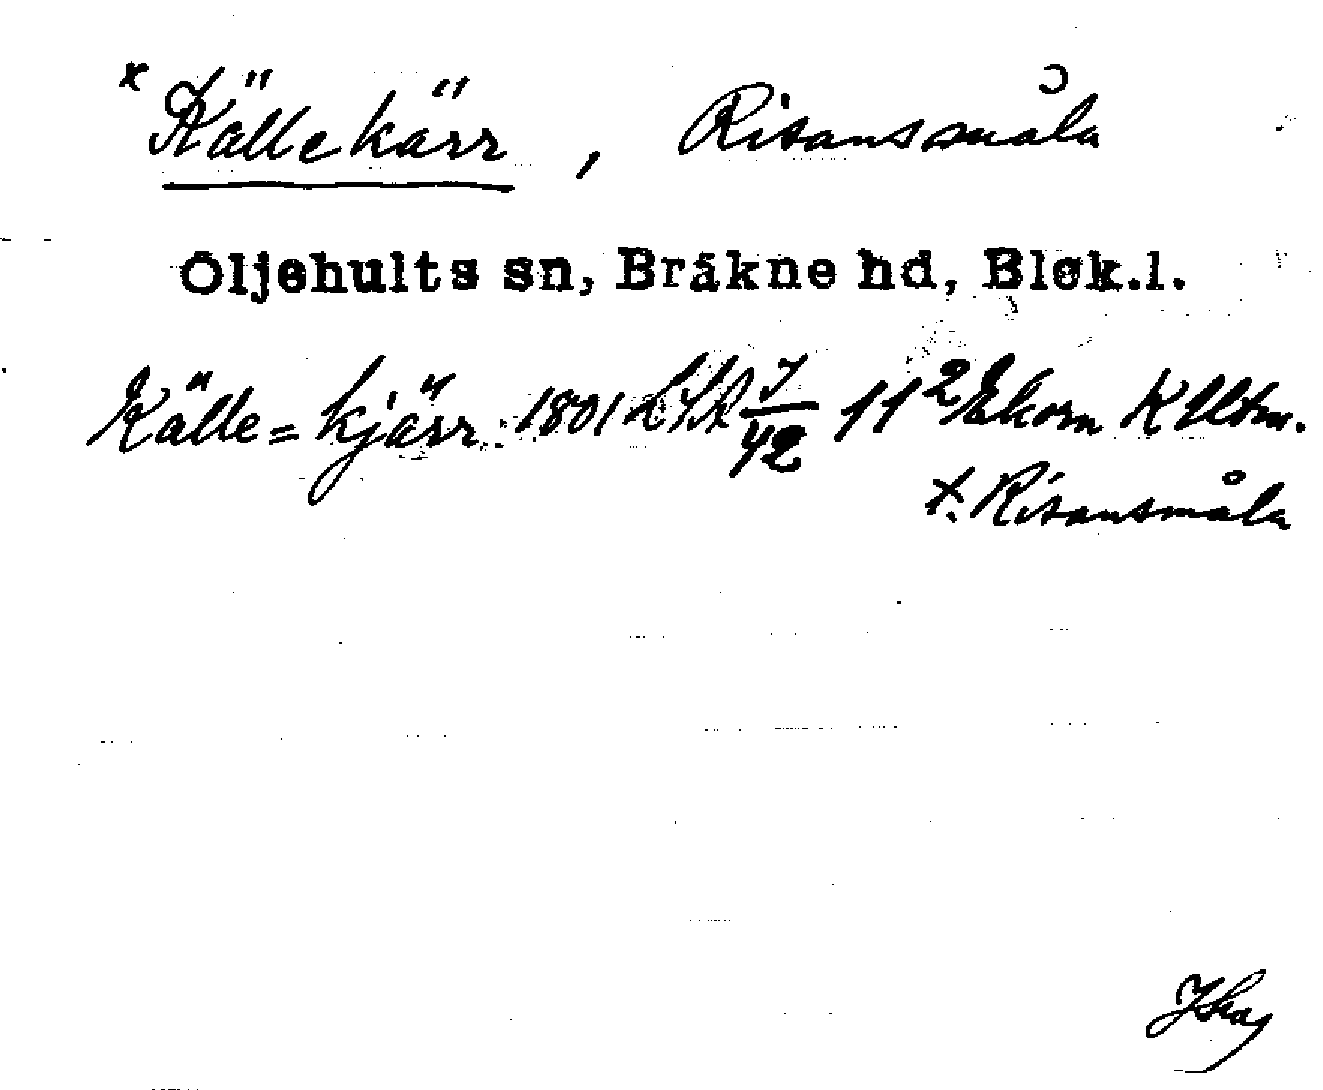 x Källekärr, Risansmåla
Öljehults sn, Bräkne hd, Blek.l.
Källe=kjärr 1801 LSA J/42 11² Ekorn K Utm.
t. Risansmåla